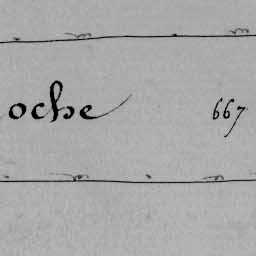 oche 667